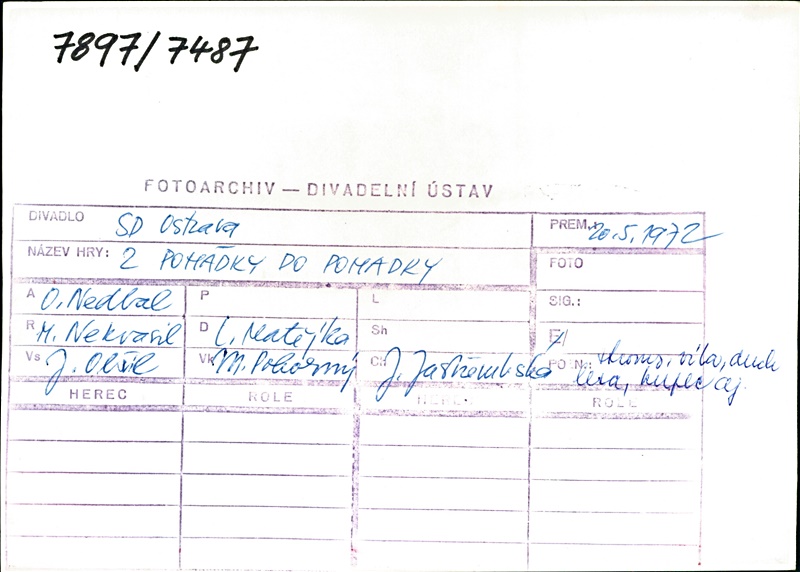 7897/7487
FOTOARCHIV — DIVADELNÍ ÚSTAV
DIVADLO SD Ostrava PREM.: 20.5.1972
NÁZEV HRY: Z POHÁDKY DO POHÁDKY FOTO
A O. Nedbal P L SIG.:
R M. Nekvasil D L. Matějka Sh F/
Vs J. Obšil Vk M. Pokorný Ch J. Jastřembská POZN.: víla, duch
lesa, kupec aj.
HEREC ROLE HEREC ROLE